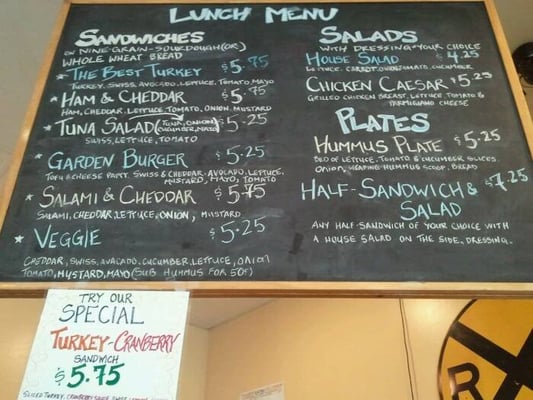 LUNCH MENU
SANDWICHES
ON NINE-GRAIN-SOURDOUGH (OR)
WHOLE WHEAT BREAD
* THE BEST TURKEY $5.75
TURKEY, SWISS, AVOCADO, LETTUCE, TOMATO, MAYO
* HAM & CHEDDAR $5.75
HAM, CHEDDAR, LETTUCE, TOMATO, ONION, MUSTARD
* TUNA SALAD (TUNA, ONION, CUCUMBER, MAYO) $5.25
SWISS, LETTUCE, TOMATO
* GARDEN BURGER $5.25
TOFU & CHEESE PATTY, SWISS & CHEDDAR, AVOCADO, LETTUCE,
MUSTARD, MAYO, TOMATO
* SALAMI & CHEDDAR $5.75
SALAMI, CHEDDAR, LETTUCE, ONION, MUSTARD
* VEGGIE $5.25
CHEDDAR, SWISS, AVOCADO, CUCUMBER, LETTUCE, ONION
TOMATO, MUSTARD, MAYO (SUB HUMMUS FOR 50¢)
SALADS
WITH DRESSING-YOUR CHOICE
HOUSE SALAD $4.25
LETTUCE, CARROT, TOMATO, CUCUMBER
CHICKEN CAESAR $5.25
GRILLED CHICKEN BREAST, LETTUCE, TOMATO &
PARMESANO CHEESE
PLATES
HUMMUS PLATE $5.25
BED OF LETTUCE, TOMATO & CUCUMBER SLICES,
ONION, HEAPING-HUMMUS SCOOP, BREAD
HALF-SANDWICH & $7.25
SALAD
ANY HALF-SANDWICH OF YOUR CHOICE WITH
A HOUSE SALAD ON THE SIDE, DRESSING.
TRY OUR
SPECIAL
TURKEY-CRANBERRY
SANDWICH
$5.75
SLICED TURKEY, CRANBERRY SAUCE, SWISS
R